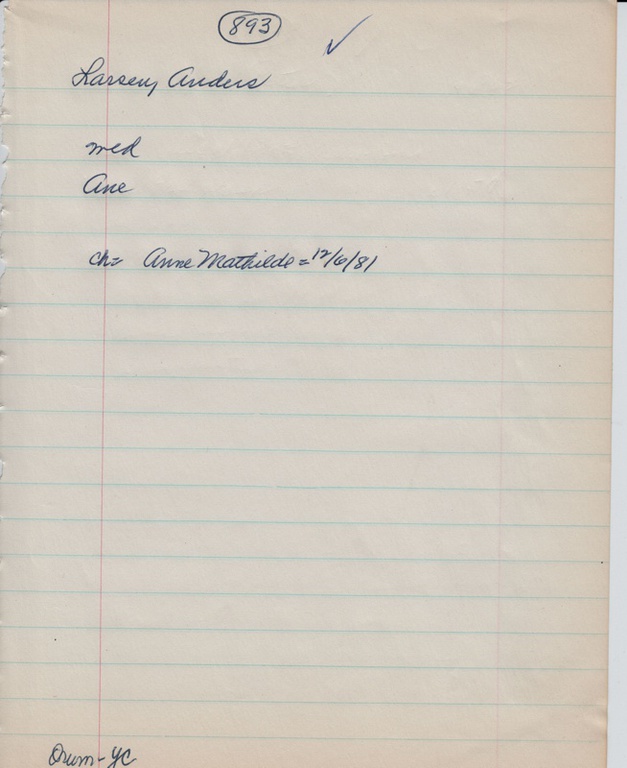 893
Larsen, Anders
med
Ane
ch= Anne Mathilde = 12/6/81
Orum - yc